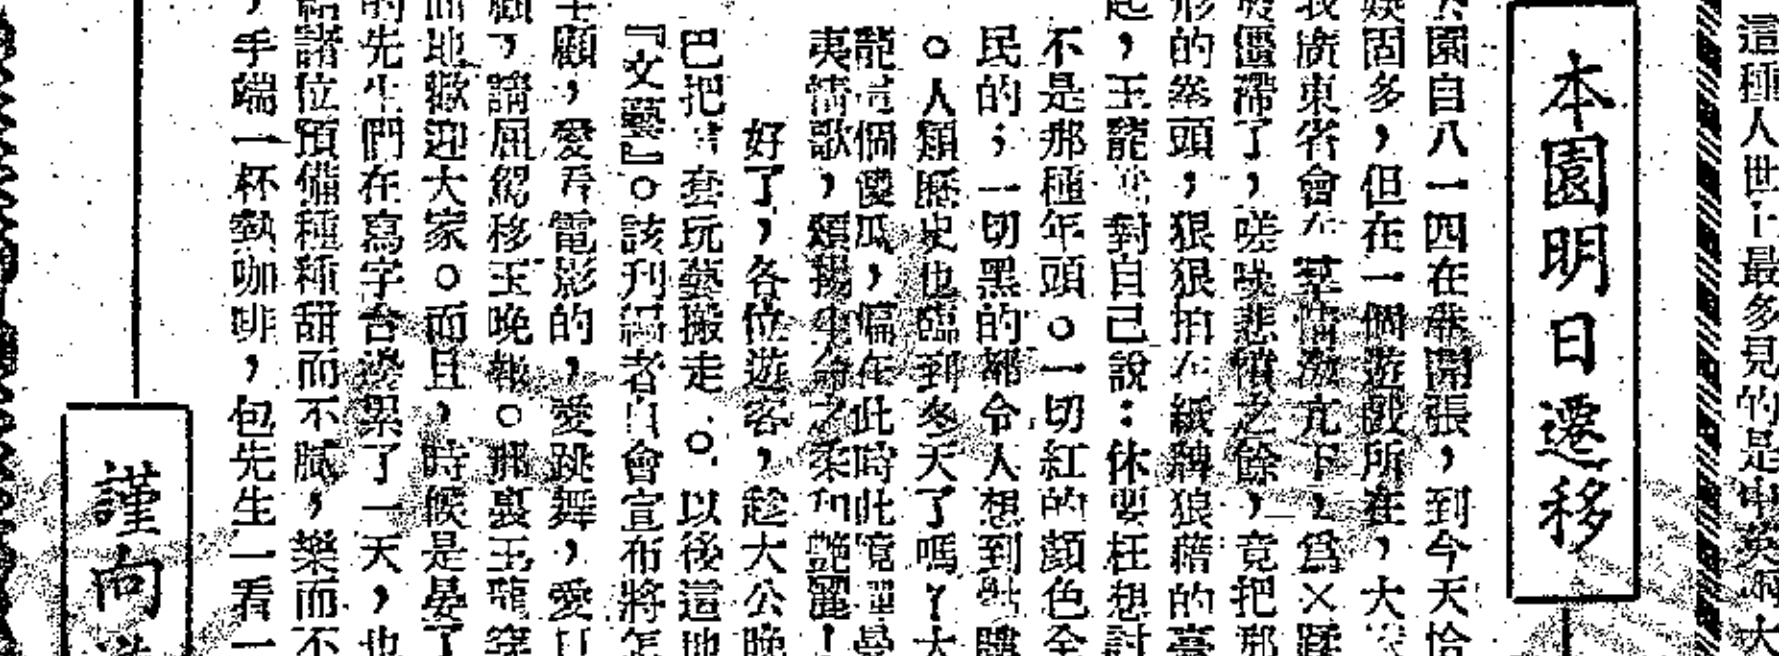 這種人世上最多見的是中英兩大
本園明日遷移
園自八一四在港開張，到今天恰
娛固多，但在一個遊戲所在，大
廣東省會在羣情激亢下，爲×蹂
僵滯了，嗟嘆悲憤之餘，竟把那
形的拳頭，狠狠拍在紙牌狼藉的臺
起，玉龍 對自己說：休要枉想討
不是那種年頭。一切紅的顏色全
民的；一切黑的都令人想到 髏
。人類歷史也臨到冬天了嗎？大
龍 個傻瓜，偏在此時此境 曼
夷情歌，頌揚 之柔和艷麗！
好了，各位遊客，趁大公晚
巴把 套玩藝搬走。以後這地
『文藝』。該刊編者自會宣布將怎
主顧，愛看電影的，愛跳舞，愛
顧，請屈駕移玉晚報。那裏玉龍穿
而地歡迎大家。而且，時候是晏了
的先生們在寫字台邊累了一天，也
給諸位預備種種甜而不膩，樂而不
，手端一杯熱咖啡，包先生一看一
謹向